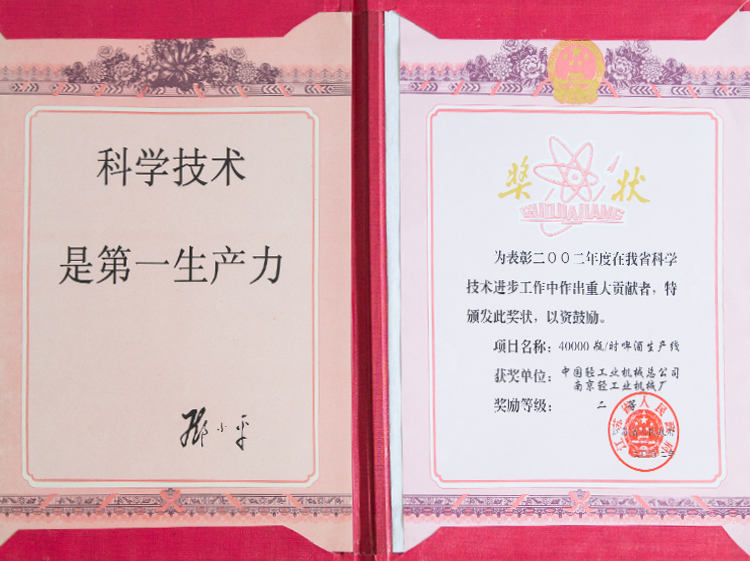 科学技术
是第一生产力
邓小平
奖状
为表彰二〇〇二年度在我省科学
技术进步工作中作出重大贡献者，特
颁发此奖状，以资鼓励。
项目名称：40000瓶/时啤酒生产线
获奖单位：中国轻工业机械总公司
南京轻工业机械厂
奖励等级：二等
江苏省人民政府